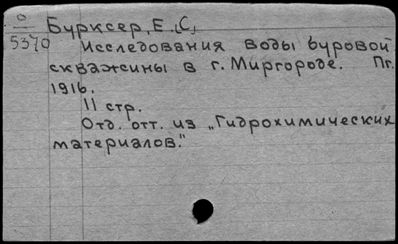 О
5370
Бурксер, Е. [С.]
Исследования воды буровой
скважины в г. Миргороде. Пг.
1916.
11 стр.
Отд. отт. из „Гидрохимических
материалов."